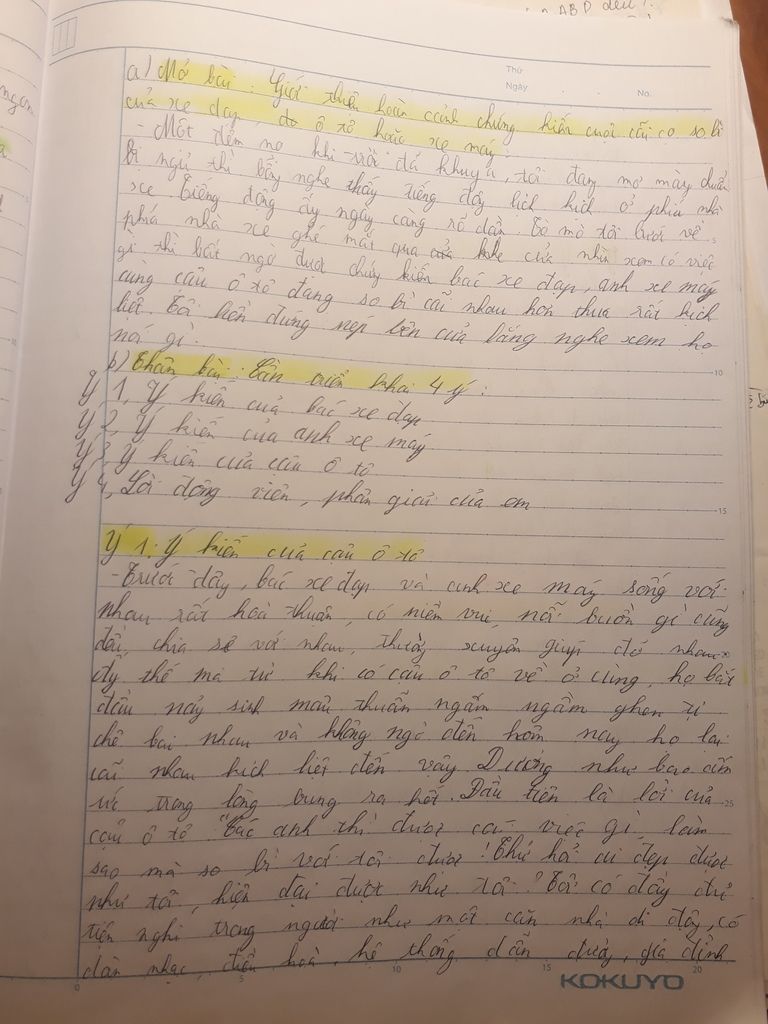 ABD đều !
Thứ
Ngày
No.
a) Mở bài : Giới thiệu hoàn cảnh chứng kiến cuộc cãi cọ so bì
của xe đạp, ô tô hoặc xe máy.
- Một đêm nọ khi trời đã khuya, tôi đang mơ màng chuẩn
bị ngủ thì bỗng nghe thấy tiếng động lịch kịch ở phía nhà
xe. Tiếng động ấy ngày càng rõ dần. Tò mò tôi bước về
phía nhà xe ghé mắt qua khe cửa nhìn xem có việc
gì thì bất ngờ được chứng kiến bác xe đạp, anh xe máy
cùng cậu ô tô đang so bì cãi nhau hơn thua rất kịch
liệt. Tôi liền đứng nép bên cửa lắng nghe xem họ
nói gì.
b) Thân bài : Cần triển khai 4 ý :
Ý 1, Ý kiến của bác xe đạp
Ý 2, Ý kiến của anh xe máy
Ý 3, Ý kiến của cậu ô tô
Ý 4, Lời động viên, phân giải của em
Ý 1: Ý kiến của cậu ô tô
- Trước đây, bác xe đạp và anh xe máy sống với
nhau rất hoà thuận, có niềm vui, nỗi buồn gì cũng
đều chia sẻ với nhau, thường xuyên giúp đỡ nhau
thế mà từ khi có cậu ô tô về ở cùng, họ bắt
đầu nảy sinh mâu thuẫn ngấm ngầm ghen tị
chê bai nhau và không ngờ đến hôm nay họ lại
cãi nhau kịch liệt đến vậy. Dường như bao ấm
ức trong lòng bung ra hết. Đầu tiên là lời của
cậu ô tô "Các anh thì được cái việc gì, làm
sao mà so bì với tôi được ! Thử hỏi ai đẹp được
như tôi, hiện đại được như tôi ? Tôi có đầy đủ
tiện nghi trong người như một căn nhà di động, có
dàn nhạc, điều hoà, hệ thống dẫn đường, gia đình
5
10
15
20
25
0
5
10
15
20
KOKUYO